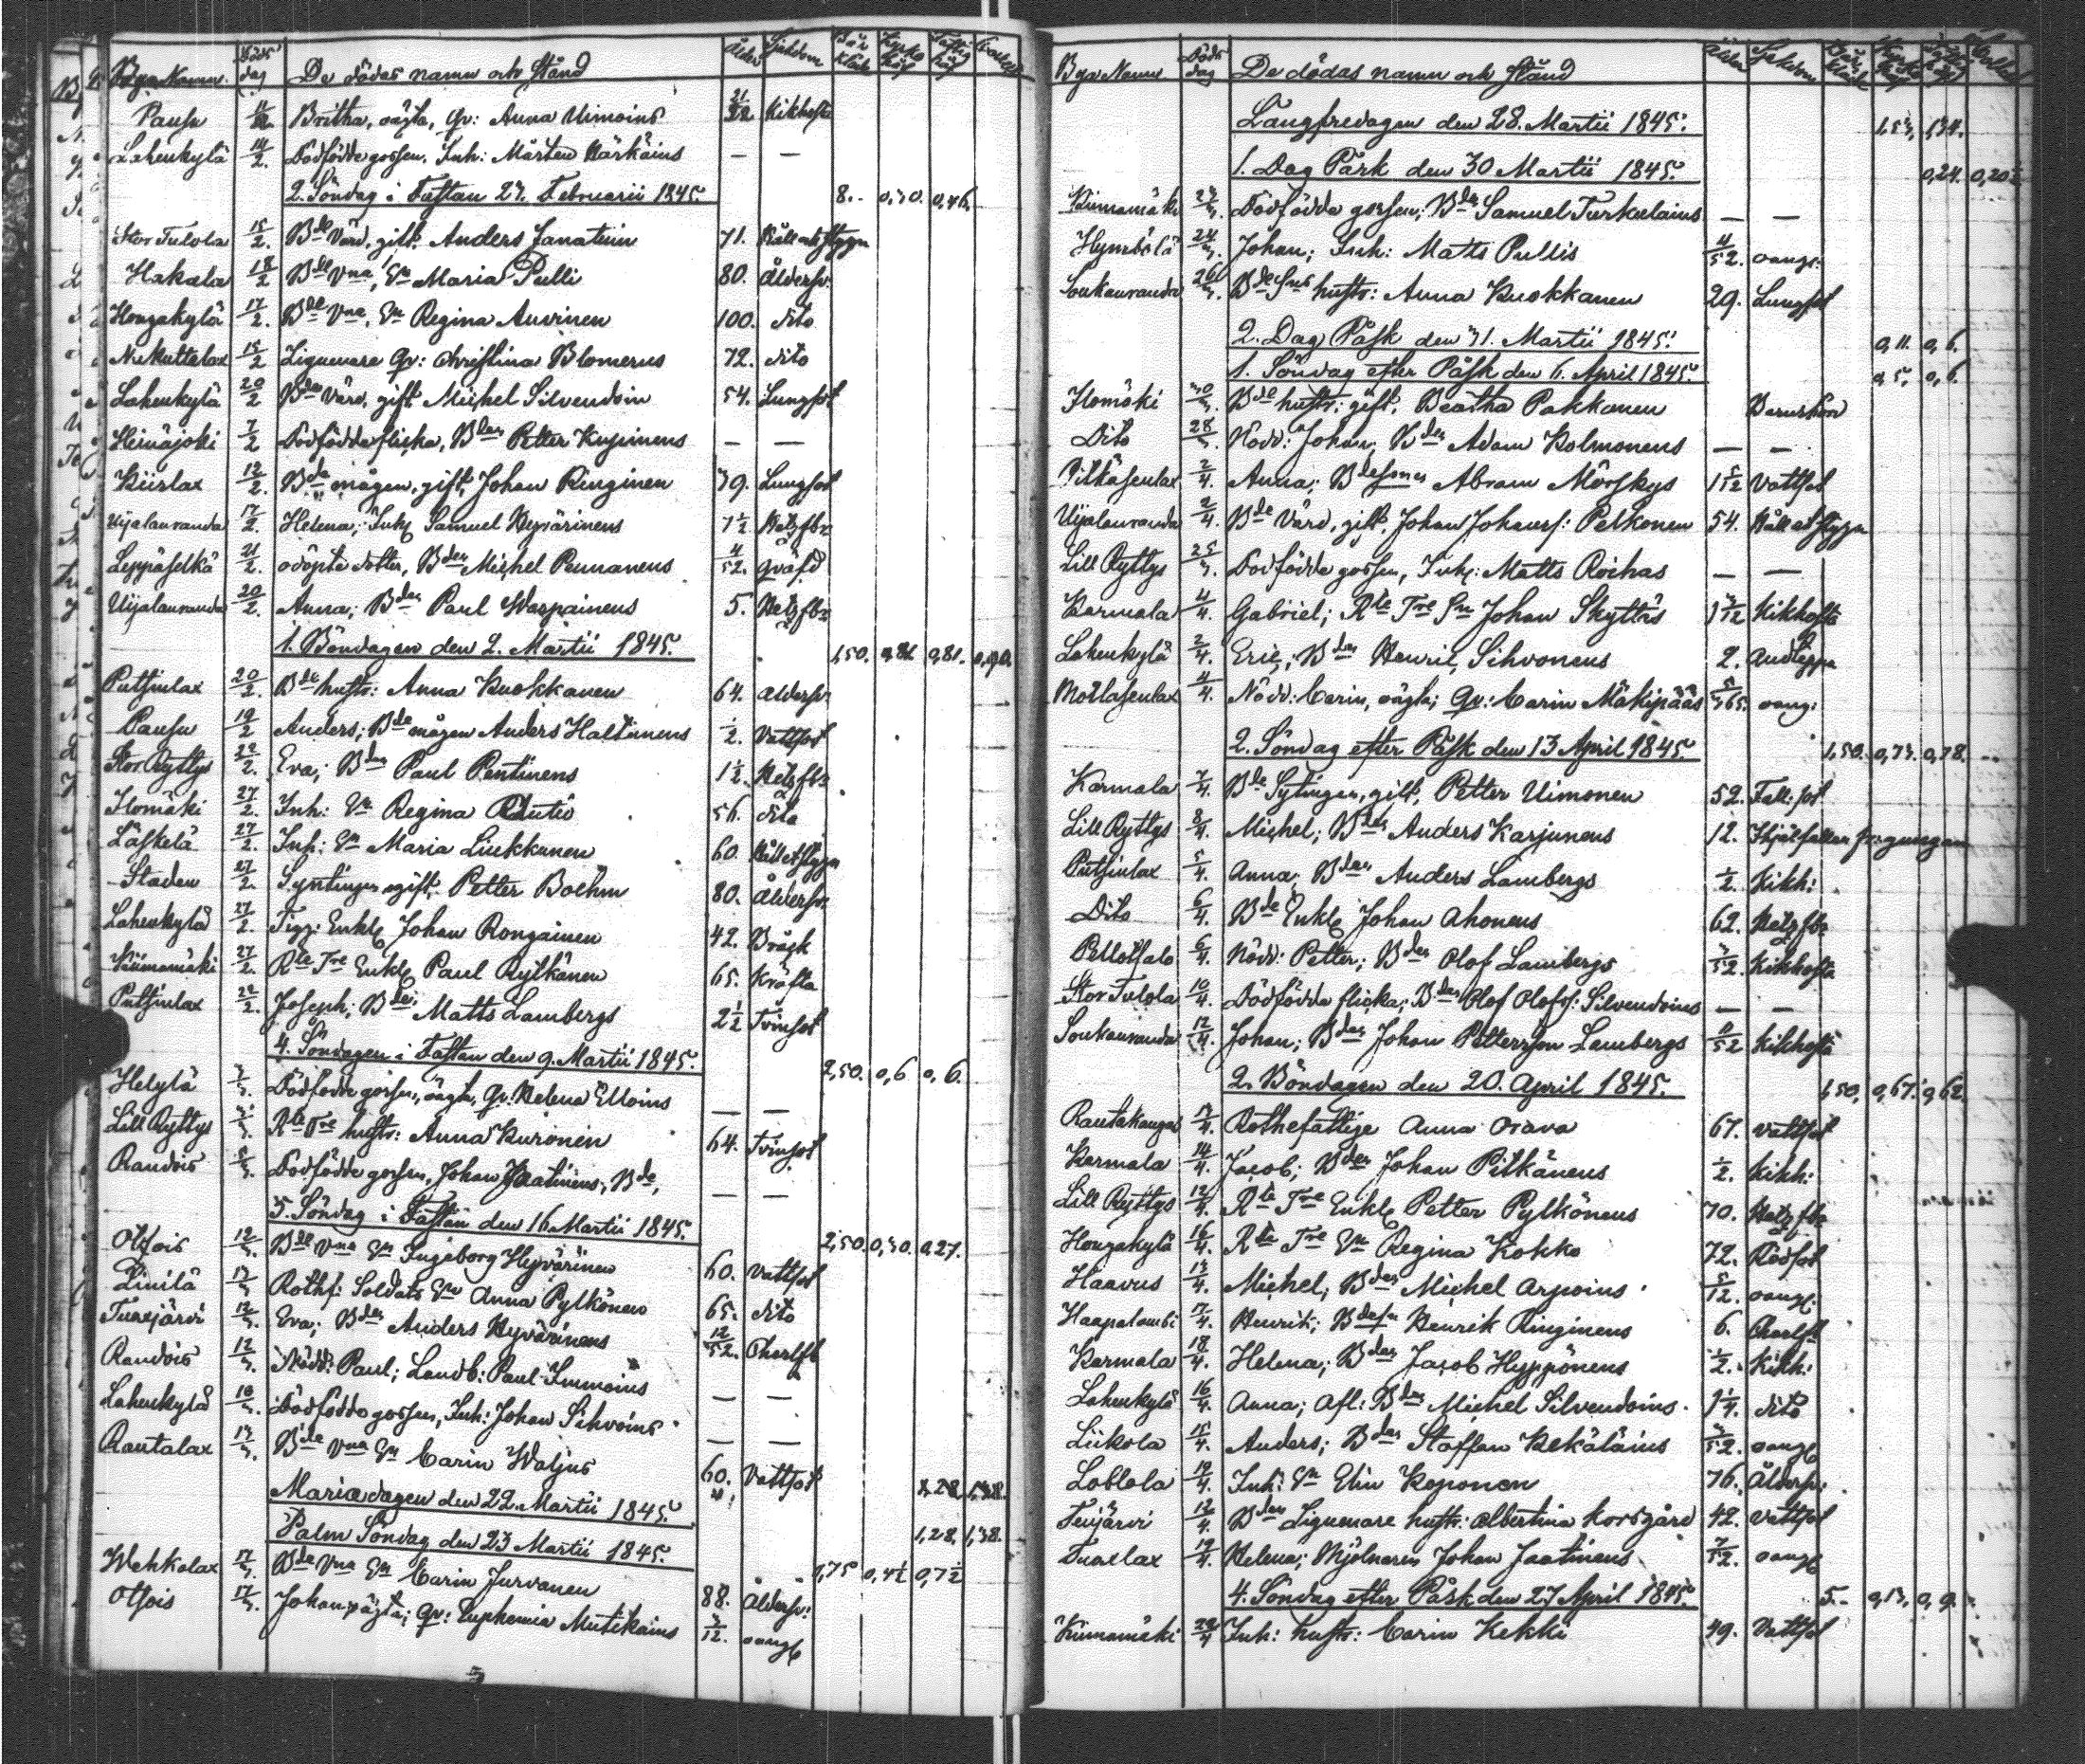 Bya Namn. Döds dag De dödas namn och Stånd Ålder Sjukdom
Pausu 11/2. Britha, oägta, Qv: Anna Uimoins 21/52. Kikhosta
Lahenkylä 14/2. Dödfödde gossen, Inh: Mårten Härkäins — —
2. Söndag i Fastan 23. Februarii 1845. 8.. 0,30. 0,46.
Stor Tulola 15/2. Bde Värd, gift. Anders Janatuin 71. Håll och Stygn
Hakala 18/2 Bde Vna, En Maria Pulli 80. Åldersv:
Honzakylä 17/2. Bde Vna, En Regina Auvinen 100. dito
Nukuttalax 15/2 Liquemare Qv: Christina Blomerus 72. dito
Lahenkylä 20/2 Bde Värd, gift, Michel Silvendoin 54. Lungsot
Heinäjoki 7/2 Dödfödda flicka, Bden Petter Kupinens — —
Kiislax 12/2. Bde mågen, gift, Johan Ringinen 39. Lungsot
Uijalanranda 17/2. Helena; Inh: Samuel Hyvärinens 7½ Hetz fbr
Leppäselkä 21/2. odöpta dotter, Bden Michel Pennanens 4/52. qväfd
Uijalanranda 20/2. Anna; Bden Paul Waspainens 5. Hetz fbr
1. Böndagen den 2. Martii 1845. 1,50. 0,81. 0,81. 0,90.
Putsinlax 20/2. Bde hustr: Anna Kuokkanen 64. åldersv.
Pausu 19/2 Anders; Bde mågen Anders Haltunens ½. Vattsot
Stor Ryttys 22/2. Eva; Bden Paul Pentinens 1½. Hetz fbr
Ilomäki 27/2. Inh: En Regina Rautio 56. dito
Läskelä 27/2. Inh: En Maria Liukkunen 60. Håll et Stygn
Staden 27/2. Syntingen, gift. Petter Boehm 80. Åldersv:
Lahenkylä 27/2. Tigg: Enkl: Johan Rongainen 42. Bråck
Kiimamäki 27/2. Rte Tre Enkl: Paul Rytkänen 65. Kräfta
Putsinlax 22/2. Joseph; Bden Matts Lambergs 2½ Tvinsot
4. Söndagen i Fastan den 9. Martii 1845. 2,50. 0,6 0,6.
Helylä 3/3. Dödfödde gossen, oägta, Qv. Helena Elloins — —
Lill Ryttys 3/3. Rte Tre hustr: Anna Kuronen 64. Tvinsot
Raudois 5/3. Dödfödde gossen, Johan Jaatinens, Bde, — —
5. Söndag i Fastan den 16 Martii 1845. 2,50. 0,30. 0,27.
Otsois 12/3. Bde Vna En Ingeborg Hyvärinen 60. Vattsot
Linilä 13/3. Rothf: Soldats En Anna Pylkönen 65. dito
Tuaxjärvi 12/3. Eva; Bden Anders Hyvärinens 12/52. Charlfb
Raudois 12/3. Nödd: Paul; Landb: Paul Immoins — —
Lahenkylä 10/3. Dödfödde gossen, Inh: Johan Sihvoins — —
Rautalax 13/3. Bde Vna En Carin Waljus 60. Vattsot
Mariædagen den 22. Martii 1845. 1,28. 1,38.
Palm Söndag den 23 Martii 1845. 1,28. 1,38.
Wehkalax 17/3. Bde Vna En Carin Jurvanen 1,75 0,4½ 0,7½ 88. Åldersv:
Otsois 17/3. Johan, oägta; Qv: Euphemia Mutikains 3/12. oangl
Bya Namn Döds dag De dödas namn och Stånd Ålder Sjukdom
Långfredagen den 28. Martii 1845. 1,53. 1,34.
1. Dag Påsk den 30 Martii 1845. 0,24. 0,20½
Kiimamäki 23/3. Dödfödde gossen; Bden Samuel Turkulains — —
Hymbölä 24/3. Johan; Inh: Matts Pullis 4/52. oangl:
Soukanranda 26/3. Bde Sns hustr: Anna Kuokkanen 29. Lungsot
2. Dag Påsk den 31. Martii 1845. 0,11. 0,6.
1. Söndag efter Påsk den 6. April 1845. 0,5. 0,6.
Ilomäki 30/3. Bde hustr: gift, Beatha Pakkanen Barnsbörd
Dito 28/3. Nödd: Johan, Bden Adam Kolmonens — —
Pitkäsenlax 2/4. Anna; Bdesones Abram Mörskys 1 5/12 Vattsot
Uijalanranda 2/4. Bde Värd, gift, Johan Johanss: Pelkonen 54. Håll et Stygn
Lill Ryttys 25/3. Dödfödde gossen, Inh: Matts Roihas — —
Karmala 4/4. Gabriel; Rte Tre Sn Johan Skyttäs 1 3/12 Kikhosta
Lahenkylä 2/4. Eric; Bden Henric Sihvonens 2. Andtäppa
Motlasenlax 4/4. Nödd: Carin, oägta; Qv: Carin Mäkipääs 5/365. oang:
2. Söndag efter Påsk den 13 April 1845. 1,50. 0,73. 0,78. ..
Karmala 7/4. Bde Sytingen, gift, Petter Uimonen 52. Fall: sot
Lill Ryttys 8/4. Michel; Bden Anders Karjunens 12. Ihjälfallen fr: gungan
Putsinlax 5/4. Anna; Bden Anders Lambergs ½ Kikh:
Dito 6/4. Bde Enkl: Johan Ahonens 62. Hetz fbr
Pellotsalo 6/4. Nödd: Petter; Bden Olof Lambergs 3/52. Kikhosta
Stor Tulola 10/4. Dödfödda flicka; Bden Olof Olofs: Silvendoins — —
Soukanranda 12/4. Johan; Bden Johan Pettersson Lambergs 11/52 Kikhosta
2. Böndagen den 20. April 1845. 1,50. 0,67. 0,62.
Rautakangas 13/4. Rothefattige Anna Orava 67. vattsot
Karmala 14/4. Jacob; Bden Johan Pitkänens ½. Kikh:
Lill Ryttys 12/4. Rte Tre Enkl: Petter Pylkönens 70. Hetz fbr
Honzakylä 16/4. Rte Tre En Regina Kokko 72. Rödsot
Haavus 13/4. Michel, Bden Michel Arpoins 5/12. oangl:
Haapalambi 17/4. Henrik; Bdesn Henrik Ringinens 6. Charlfb
Karmala 18/4. Helena; Bden Jacob Hyppönens ½. Kikh:
Lahenkylä 16/4. Anna; Afl: Bden Michel Silvendoins. 1¼. dito
Liikola 15/4. Anders; Bden Staffan Kekäläins 3/52. oangl
Loblola 19/4. Inh: En Elin Koponen 76. Åldersv:
Teujärvi 12/4. Bden Liquemare hustr: Albertina Korsgård 42. vattsot
Tunelax 19/4. Helena; Mjölnaren Johan Jaatinens 7/52. oangl
4. Söndag efter Påsk den 27 April 1845. 5.- 0,13. 0,9.
Kiimamäki 22/4 Inh: hustr: Carin Kekki 49. Vattsot